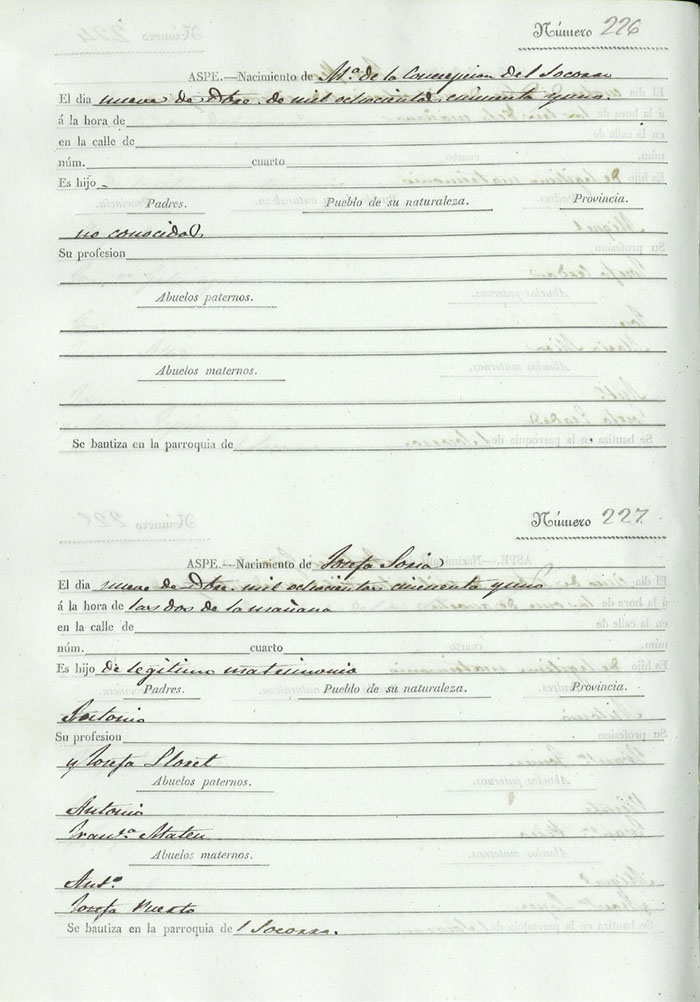 Número 226
ASPE.—Nacimiento de Mª de la Concepcion del Socorro
El dia nueve de Dbre. de mil ochocientos cincuenta y uno.
á la hora de
en la calle de
núm. cuarto
Es hijo
Padres. Pueblo de su naturaleza. Provincia.
no conocidos
Su profesion
Abuelos paternos.
Abuelos maternos.
Se bautiza en la parroquia de
Número 227
ASPE.—Nacimiento de Josefa Soria
El dia nueve de Dbre. mil ochocientos cincuenta y uno
á la hora de las dos de la mañana
en la calle de
núm. cuarto
Es hijo de legitimo matrimonio
Padres. Pueblo de su naturaleza. Provincia.
Antonio
Su profesion
y Josefa Lloret
Abuelos paternos.
Antonio
Franª Mateu
Abuelos maternos.
Antº
Josefa Puerto
Se bautiza en la parroquia de l Socorro.